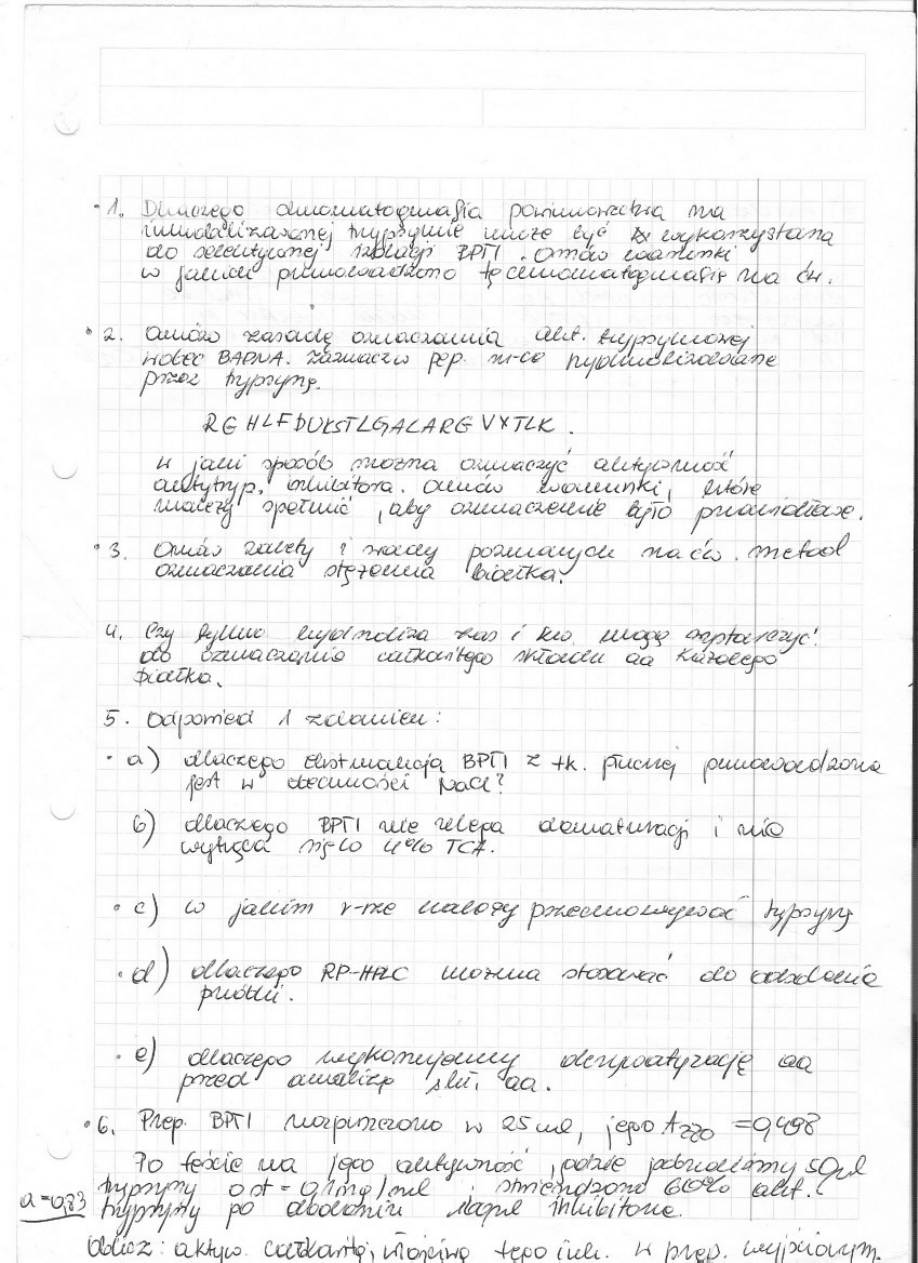 1. Dlaczego chromatografia powinowactwa na
immobilizowanej trypsynie może być wykorzystana
do selektywnej izolacji BPTI. Omów warunki
w jakich prowadzono tę chromatografię na ćw.
2. Omów zasadę oznaczania akt. trypsynowej
wobec BAPNA. Zaznacz w pep. m-ce hydrolizowane
przez trypsynę.
RGHLFDVKSTLGALARGVXTLK.
W jaki sposób można oznaczyć aktywność
antytryp. inhibitora. Omów warunki, które
należy spełnić, aby oznaczenie było prawidłowe.
3. Omów zalety i wady poznanych na ćw. metod
oznaczania stężenia białka.
4. Czy tylko hydroliza zas i kw. mogą wystarczyć
do oznaczania całkowitego składu aa każdego
białka.
5. Odpowied 1 zdaniem:
a) dlaczego ekstrakcja BPTI z tk. płucnej prowadzona
jest w obecności NaCl?
b) dlaczego BPTI nie ulega denaturacji i nie
wytrąca się w 4% TCA.
c) w jakim r-rze należy przechowywać trypsynę
d) dlaczego RP-HPLC można stosować do odsolenia
próbki.
e) dlaczego wykonujemy derywatyzację aa
przed analizą skł. aa.
6. Prep. BPTI rozpuszczono w 25 ml, jego A280 = 0,498
Po teście na jego aktywność, gdzie pobraliśmy 50µl
trypsyny o st = 0,1mg/ml stwierdzono 60% akt.
a=0,83 trypsyny po dodaniu inhibitora.
Oblicz: aktyw. całkowitą, właściwą tego inh. w prep. wyjściowym.